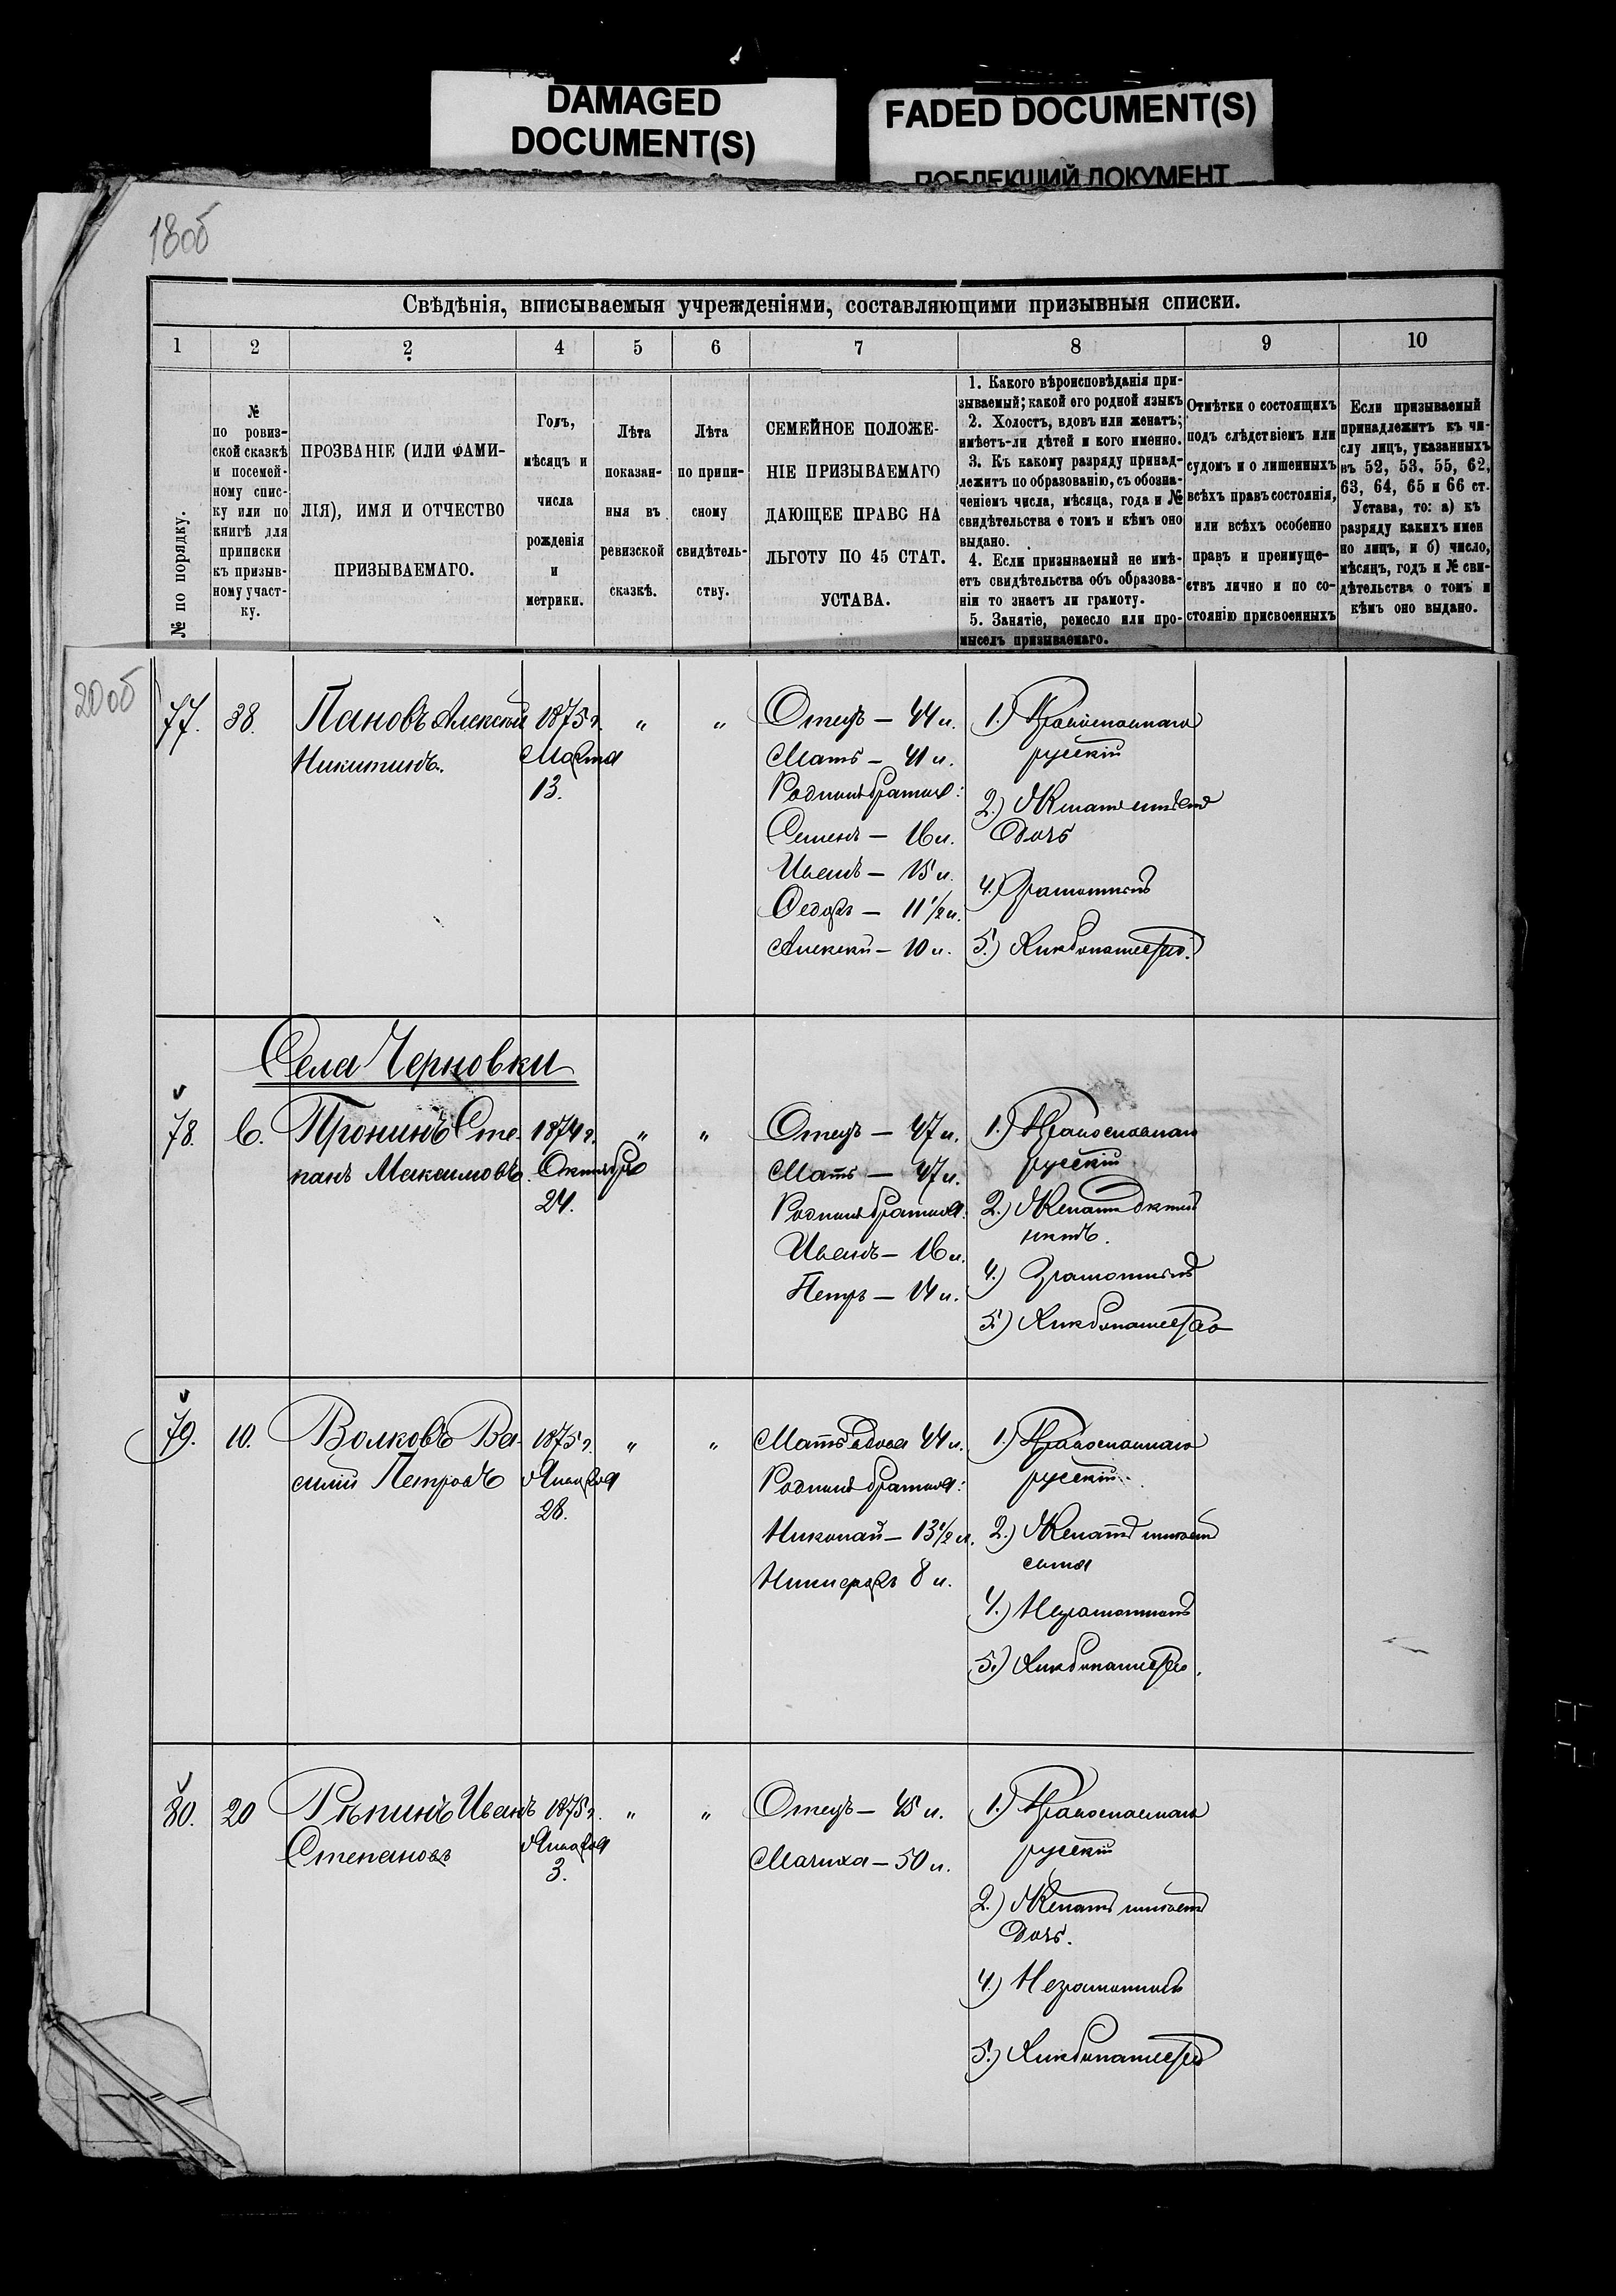 DAMAGED
DOCUMENT(S)
FADED DOCUMENT(S)
ПОБЛЕКШИЙ ДОКУМЕНТ
18об
Свѣдѣнія, вписываемыя учрежденіями, составляющими призывныя списки.
1 2 2 4 5 6 7 8 9 10
№ по порядку.
№
по ровиз-
ской сказкѣ
и посемей-
ному спис-
ку или по
книгѣ для
приписки
къ призыв-
ному участ-
ку.
ПРОЗВАНІЕ (ИЛИ ФАМИ-
ЛІЯ), ИМЯ И ОТЧЕСТВО
ПРИЗЫВАЕМАГО.
Годъ,
мѣсяцъ и
числа
рожденія
и
метрики.
Лѣта
показан-
ныя въ
ревизской
сказкѣ.
Лѣта
по припи-
сному
свидѣтель-
ству.
СЕМЕЙНОЕ ПОЛОЖЕ-
НІЕ ПРИЗЫВАЕМАГО
ДАЮЩЕЕ ПРАВО НА
ЛЬГОТУ ПО 45 СТАТ.
УСТАВА.
1. Какого вѣроисповѣданія при-
зываемый; какой его родной языкъ
2. Холостъ, вдовъ или женатъ;
имѣетъ-ли дѣтей и кого именно.
3. Къ какому разряду принад-
лежитъ по образованію, съ обозна-
ченіемъ числа, мѣсяца, года и №
свидѣтельства о томъ и кѣмъ оно
выдано.
4. Если призываемый не имѣ-
етъ свидѣтельства объ образова-
ніи то знаетъ ли грамоту.
5. Занятіе, ремесло или про-
мыселъ призываемаго.
Отмѣтки о состоящихъ
подъ слѣдствіемъ или
судомъ и о лишенныхъ
всѣхъ правъ состоянія,
или всѣхъ особенно
правъ и преимуще-
ствъ лично и по со-
стоянію присвоенныхъ
Если призываемый
принадлежитъ къ чи-
слу лицъ, указанныхъ
въ 52, 53, 55, 62,
63, 64, 65 и 66 ст.
Устава, то: а) къ
разряду какихъ имен
но лицъ, и б) число,
мѣсяцъ, годъ и № сви-
дѣтельства о томъ и
кѣмъ оно выдано.
20об
77. 38. Пановъ Алексѣй 1875 г. " "
Никитинъ. Марта
13.
Отецъ — 44 л.
Мать — 41 л.
Родныя братья:
Семенъ — 16 л.
Иванъ — 15 л.
Ѳедоръ — 11 1/2 л.
Алексѣй — 10 л.
1.) Православнаго
русскій
2.) Женатъ имѣетъ
дочь
4.) Грамотный
5.) Хлѣбопашество.
Села Черновки
78. 6. Пронинъ Сте- 1874 г. " "
панъ Максимовъ. Октября
24.
Отецъ — 47 л.
Мать — 47 л.
Родныя братья:
Иванъ — 16 л.
Петръ — 14 л.
1.) Православнаго
русскій
2.) Женатъ дѣтей
нѣтъ.
4.) Грамотный
5.) Хлѣбопашество
79. 10. Волковъ Ва- 1875 г. " "
силій Петровъ Января
28.
Мать вдова 44 л.
Родныя братья:
Николай — 13 1/2 л.
Никифоръ 8 л.
1.) Православнаго
русскій.
2.) Женатъ имѣетъ
сына
4.) Неграмотный
5.) Хлѣбопашество.
80. 20 Рѣпинъ Иванъ 1875 г. " "
Степановъ Января
3.
Отецъ — 45 л.
Мачиха — 50 л.
1.) Православнаго
русскій
2.) Женатъ имѣетъ
дочь.
4.) Неграмотный
5.) Хлѣбопашество